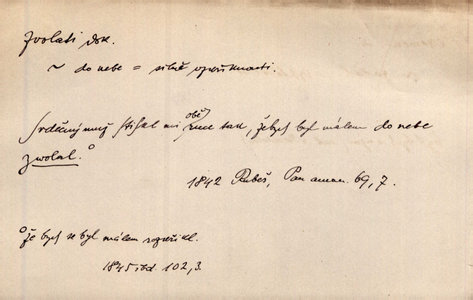 Zvolati dok.
~ do nebe = silně vykřiknouti.
Srdečný muž stiskal mi obě ruce tak, žebych byl málem do nebe
zvolal.°
1842 Rubeš, Pan aman. 69, 7.
°že bych se byl málem
1845 ibd. 102,3.